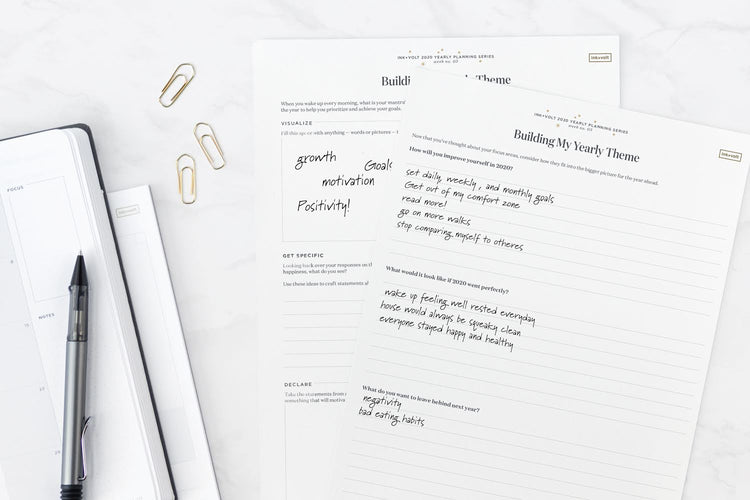 FOCUS
NOTES
INK+VOLT 2020 YEARLY PLANNING SERIES
week no. 02
ink+volt
Theme
When you wake up every morning, what is your mantra
the year to help you prioritize and achieve your goals.
VISUALIZE
Fill this space with anything — words or pictures —
growth
Goals
motivation
Positivity!
GET SPECIFIC
Looking back over your responses on th
happiness, what do you see?
Use these ideas to craft statements a
DECLARE
Take the statements from
something that will motiva
INK+VOLT 2020 YEARLY PLANNING SERIES
week no. 02
ink+volt
Building My Yearly Theme
Now that you've thought about your focus areas, consider how they fit into the bigger picture for the year ahead.
How will you improve yourself in 2020?
set daily, weekly, and monthly goals
Get out of my comfort zone
read more!
go on more walks
stop comparing myself to otheres
What would it look like if 2020 went perfectly?
wake up feeling well rested everyday
house would always be squeaky clean
everyone stayed happy and healthy
What do you want to leave behind next year?
negativity
bad eating habits